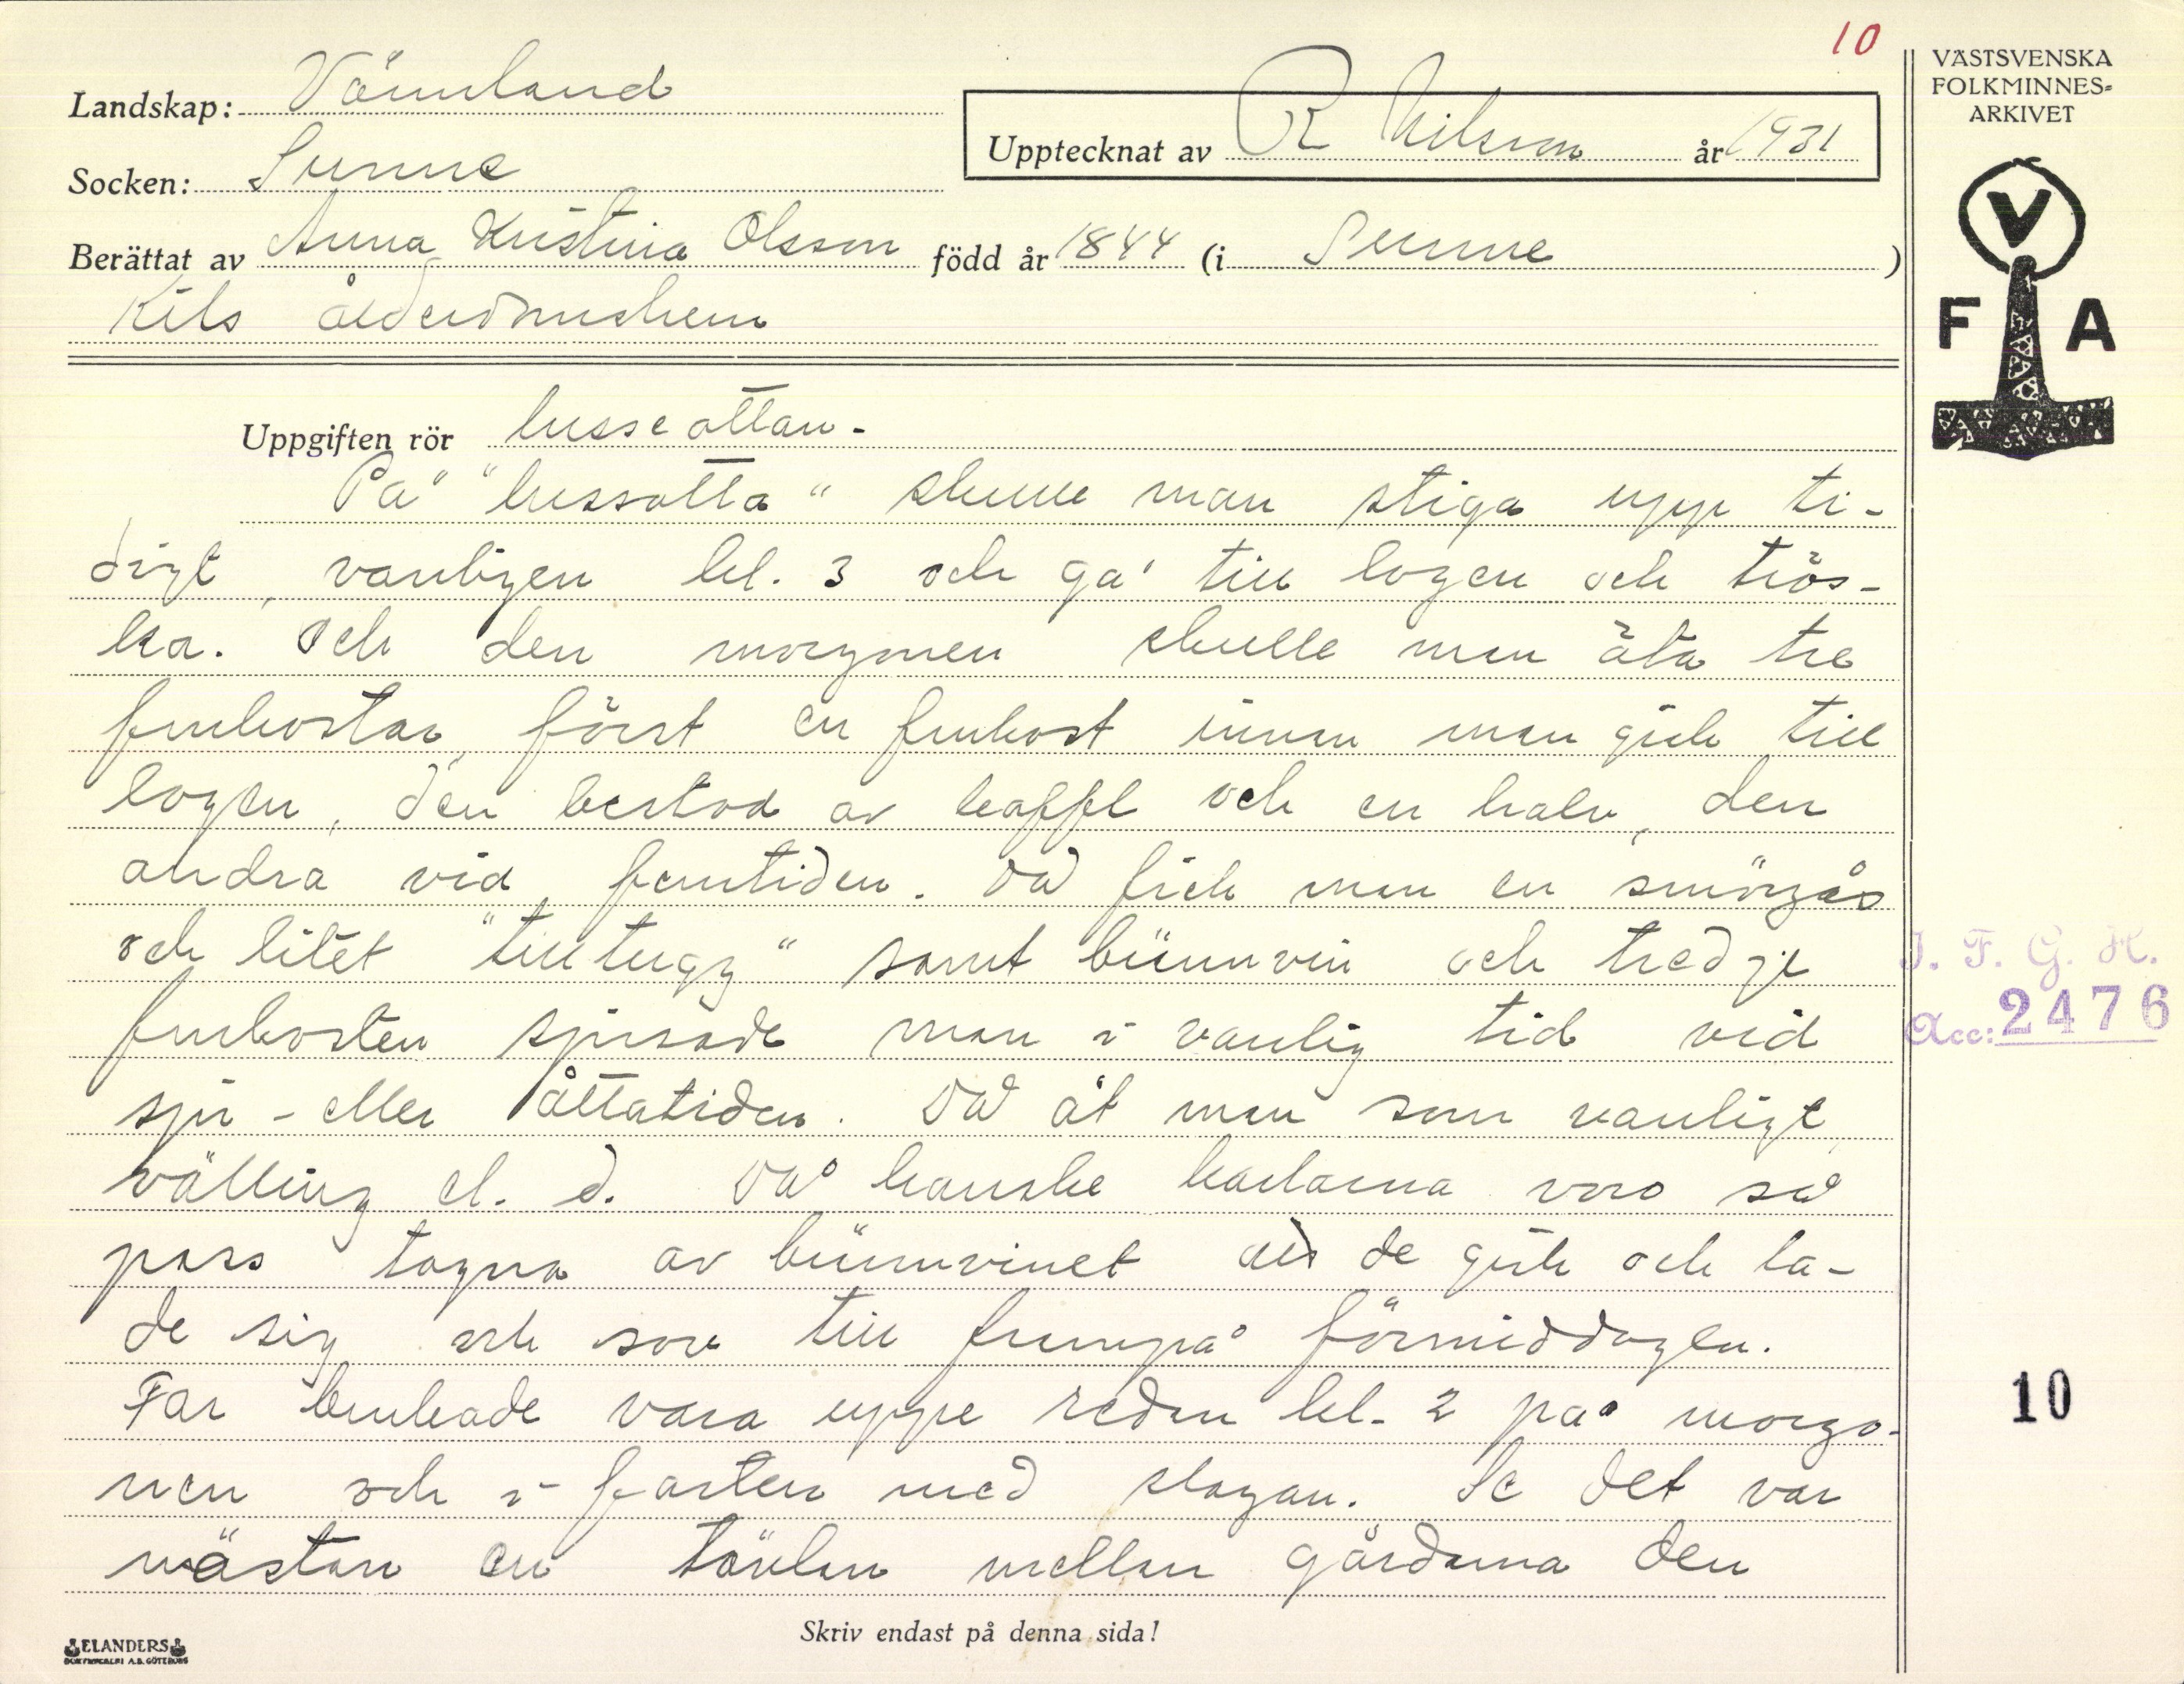 10
VÄSTSVENSKA
FOLKMINNES=
ARKIVET
Landskap: Värmland
Upptecknat av R Nilsson år 1931
Socken: Sunne
Berättat av Anna Kristina Olsson född år 1844 (i Sunne)
Kils ålderdomshem
V
F A
Uppgiften rör lusseottan.
På "lussotta" skulle man stiga upp ti-
digt, vanligen kl. 3 och gå till logen och trös-
ka. Och den morgonen skulle man äta tre
frukostar, först en frukost innan man gick till
logen, den bestod av kaffe och en halv, den
andra vid femtiden. Då fick man en smörgås
och litet "tilltugg" samt brännvin och tredje
frukosten spisade man i vanlig tid vid
sju- eller åttatiden. Då åt man som vanligt,
välling el. d. Då kanske karlarna voro så
pass tagna av brännvinet att de gick och la-
de sig och sov till frampå förmiddagen.
Far brukade vara uppe redan kl. 2 på morgo-
nen och i farten med slagan. Se det var
nästan en tävlan mellan gårdarna den
I. F. G. H.
Acc: 2476
10
Skriv endast på denna sida!
ELANDERS
BOKTRYCKERI A.B. GÖTEBORG